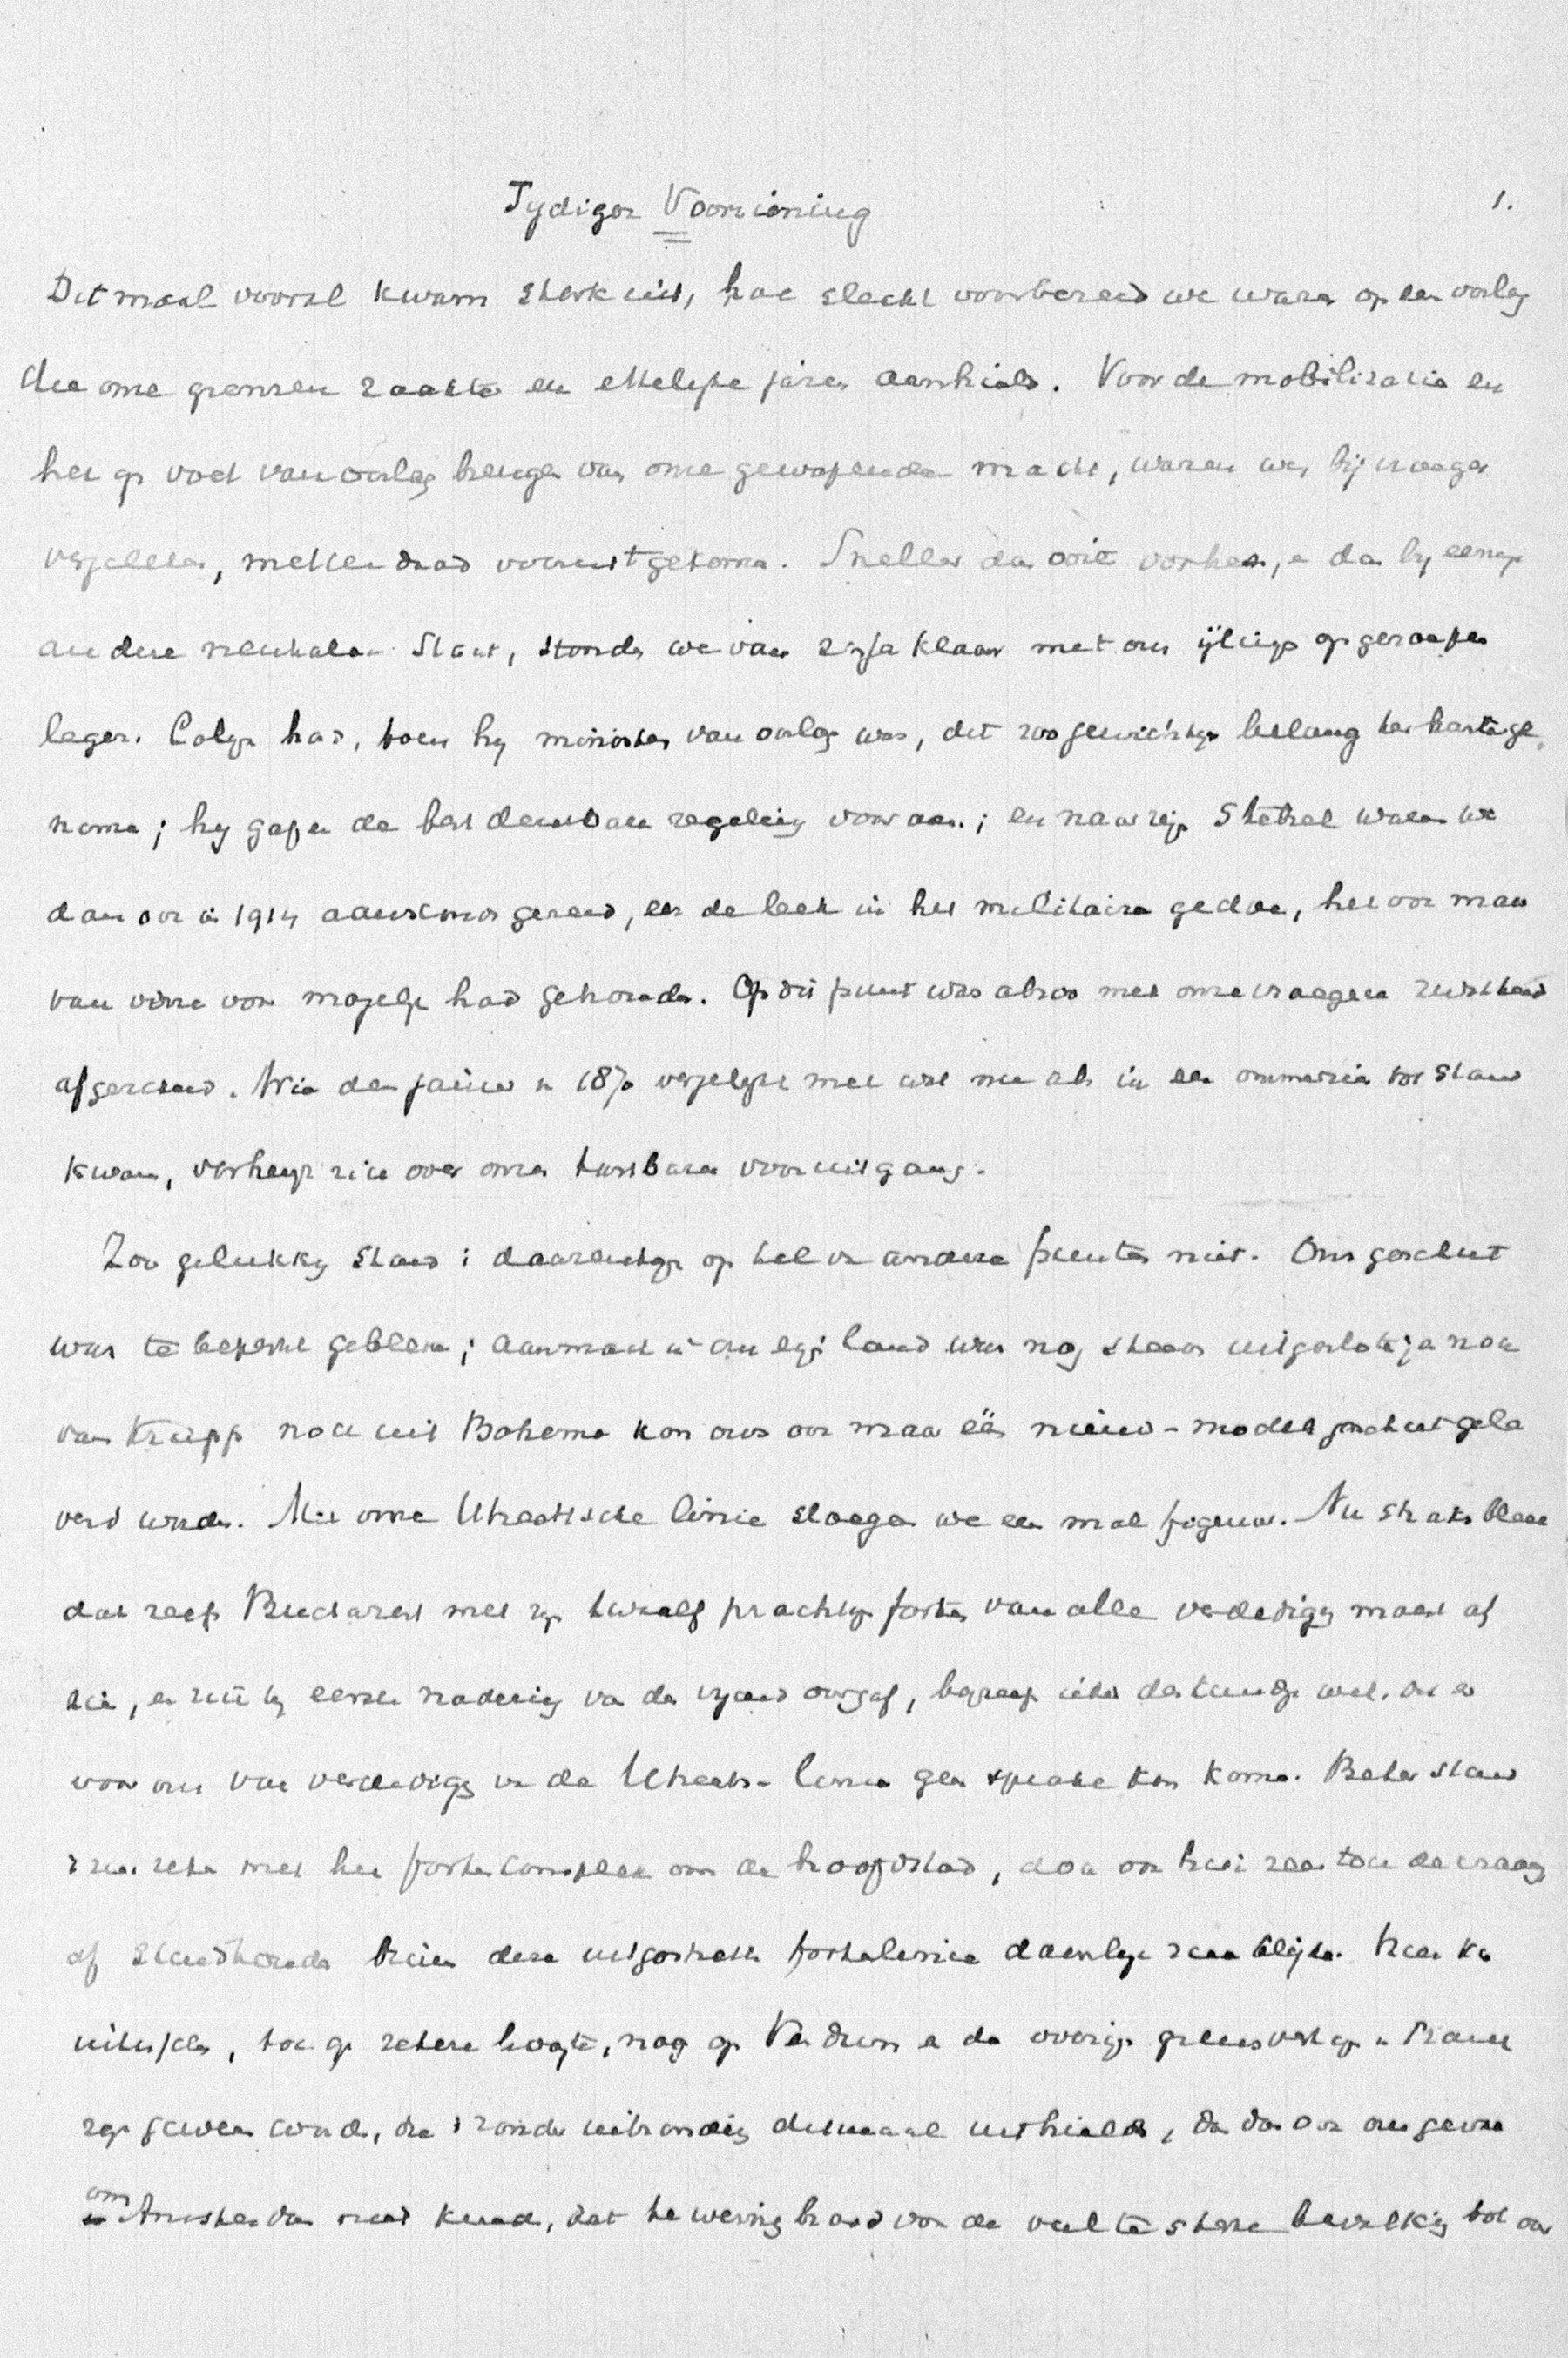 Tydiger Voorziening 1.
Ditmaal vooral kwam sterk uit, hoe slecht voorbereid we waren op een oorlog
die onze grenzen raakte en ettelyke jaren aanhield. Voor de mobilisatie en
het op voet van oorlog brengen van onze gewapende macht, waren we, bij vroeger
vergeleken, metterdaad vooruitgekomen. Sneller dan ooit voorheen, en dan by eenige
andere neutralen Staat, stonden we van zyde klaar met ons ijlings opgeroepen
leger. Colyn had, toen hy minister van oorlog was, dit zoo gewichtige belang ter harte ge-
nomen; hy gaf er de best denkbare regeling voor aan; en naar zijn stelsel waren we
dan ook in 1914 aanstonds gereed, eer de leek in het militaire gedoe, het ook maar
van verre voor mogelyk had gehouden. Op dit punt was alzoo met onze vroegere
afgerekend. Wie den in 1870 vergelykt met wat nu als in een ommezien tot stand
kwam, verheugt zich over onzen tastbaren vooruitgang.
Zoo gelukkig stond 't daarentegen op tal van andere punten niet. Ons geschut
was te beperkt gebleven; aanmaak in ons eigen land was nog steeds uitgesloten; en noch
van Krupp noch uit Bohemen kon ons ook maar één nieuw-model geschut gele
verd worden. Met onze Utrechtsche linie sloegen we een mal figuur. Nu straks bleek
dat zelfs Bucharest met zyn twaalf prachtige forten van alle verdediging moest af
zien, en zich by eerste nadering van den vyand overgaf, begreep ieder deskundige wel, dat er
voor ons van verdediging van de Utrechtsche linie geen sprake kon komen. Beter stond
't nu zeker met het fortencomplex om de hoofdstad, doch ook hier rees toch de vraag,
of standhouden binnen deze uitgestrekte fortenlinie denkelyk zou blyken. Hier kon
, tot op zekere hoogte, nog op Verdun en de overige grensvesting in Frankryk
gewezen worden, die 't zonder ditmaal uithielden, dan dan ook
om Amsterdam niet, dat te weinig brood voor de veel te sterke bevolking tot